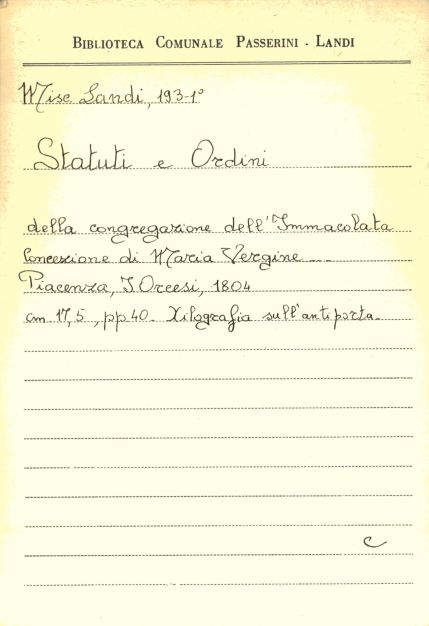 BIBLIOTECA COMUNALE PASSERINI - LANDI
Misc Landi, 193-1°
Statuti e Ordini
della congregazione dell'Immacolata
Concezione di Maria Vergine ...
Piacenza, I Orcesi, 1804
cm 17,5, pp 40. Xilografia sull'antiporta.
C